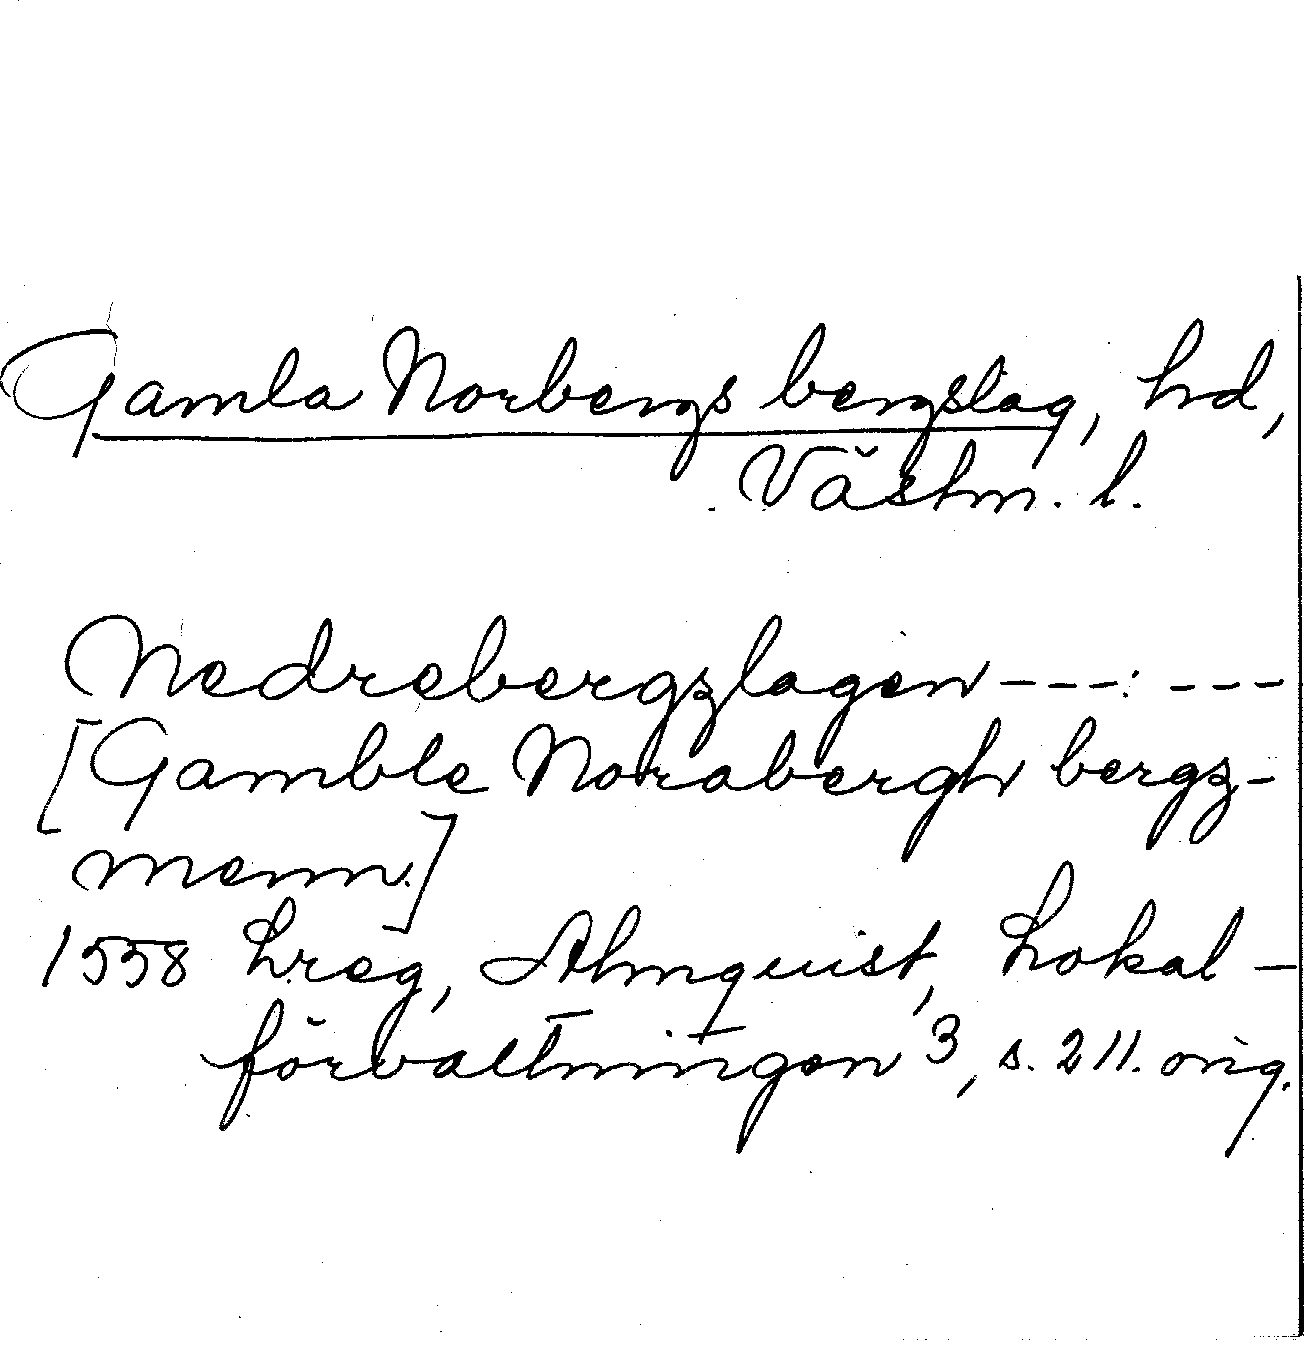 Gamla Norbergs bergslag, hd,
Västm. l.
Nedrebergzlagen ---: ---
[Gamble Norabergh bergz-
menn.]
1558 Lreg, Almquist, Lokal-
förvaltningen 3, s. 211. orig.